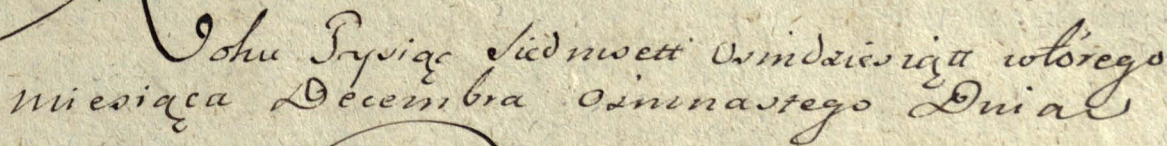 Roku Tysiąc Siedmsett Osmdziesiątt wtórego
miesiąca Decembra osmnastego Dnia